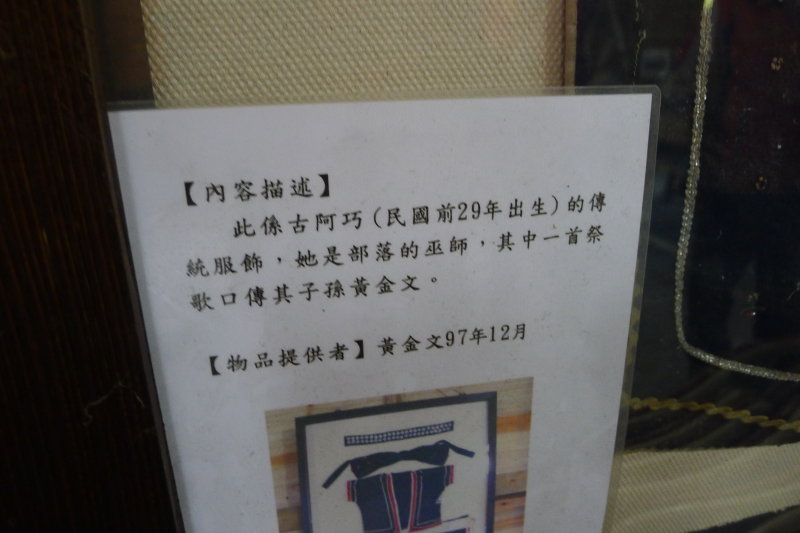 【內容描述】
此係古阿巧(民國前29年出生)的傳
統服飾，她是部落的巫師，其中一首祭
歌口傳其子孫黃金文。
【物品提供者】黃金文97年12月